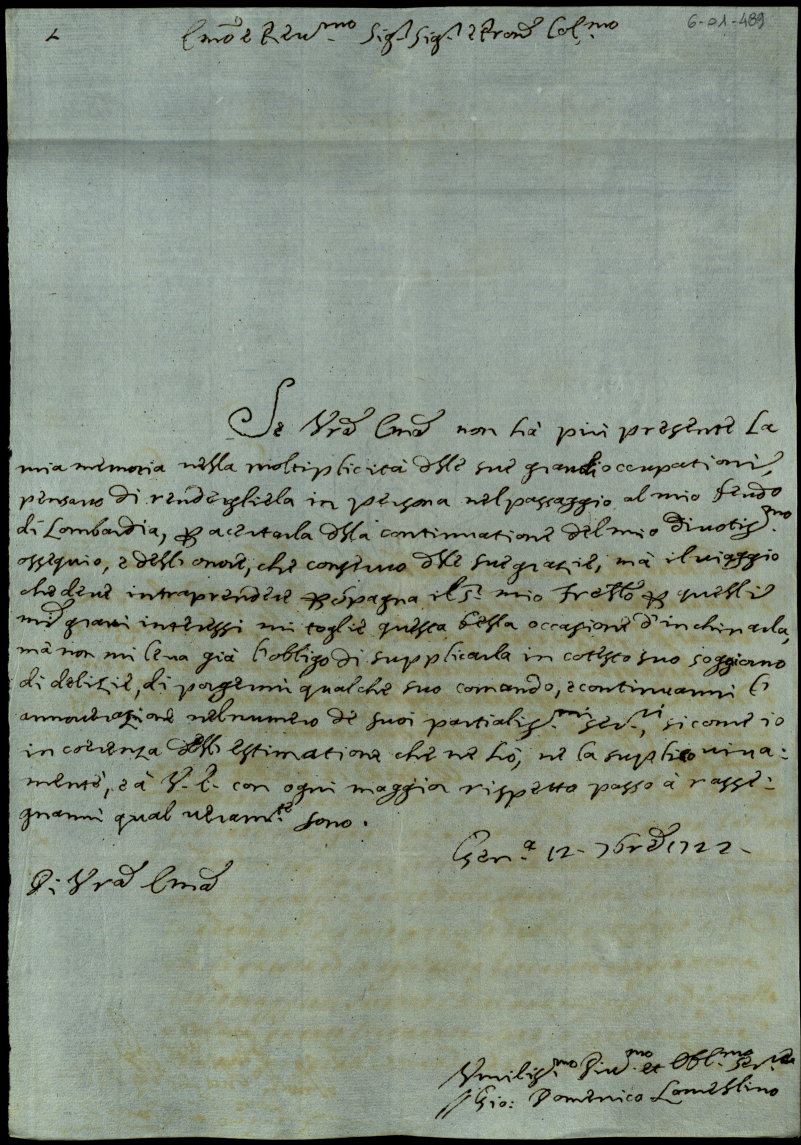 6-01-489
Em̃o e Reu.mo Sig.r Sig.r e Pron̄ Col.mo
Se Vrã Em̃a non hà più presente la
mia memoria nella moltiplicità delle sue grandi occupationi,
pensavo di rendergliela in persona nel passaggio al mio feudo
di Lombardia, per acertarla della continuatione del mio divotiss.mo
ossequio, e dell onore, che conservo delle sue grazie, mà il viaggio
che deve intraprendere per Spagna il Sr. mio Frello per quelli
miei gravi interessi mi toglie questa bella occasione d'inchinarla,
mà non mi leva già l'obligo di supplicarla in cotesto suo soggiorno
di delizie, di porgermi qualche suo comando, e continuarmi l'
annoverazione nel numero de suoi partialiss.mi ser.ri, si come io
in coerenza dell estimatione che ne hò, ne la suplico viva:
mente, e à V. E. con ogni maggior rispetto passo à rasse:
gnarmi qual veram.te sono.
Gen.a 12. 7brẽ 1722.
Di Vrã Em̃a
Vmiliss.mo Diu.mo et Obl.mo Ser.re
Gio: Domenico Lomellino